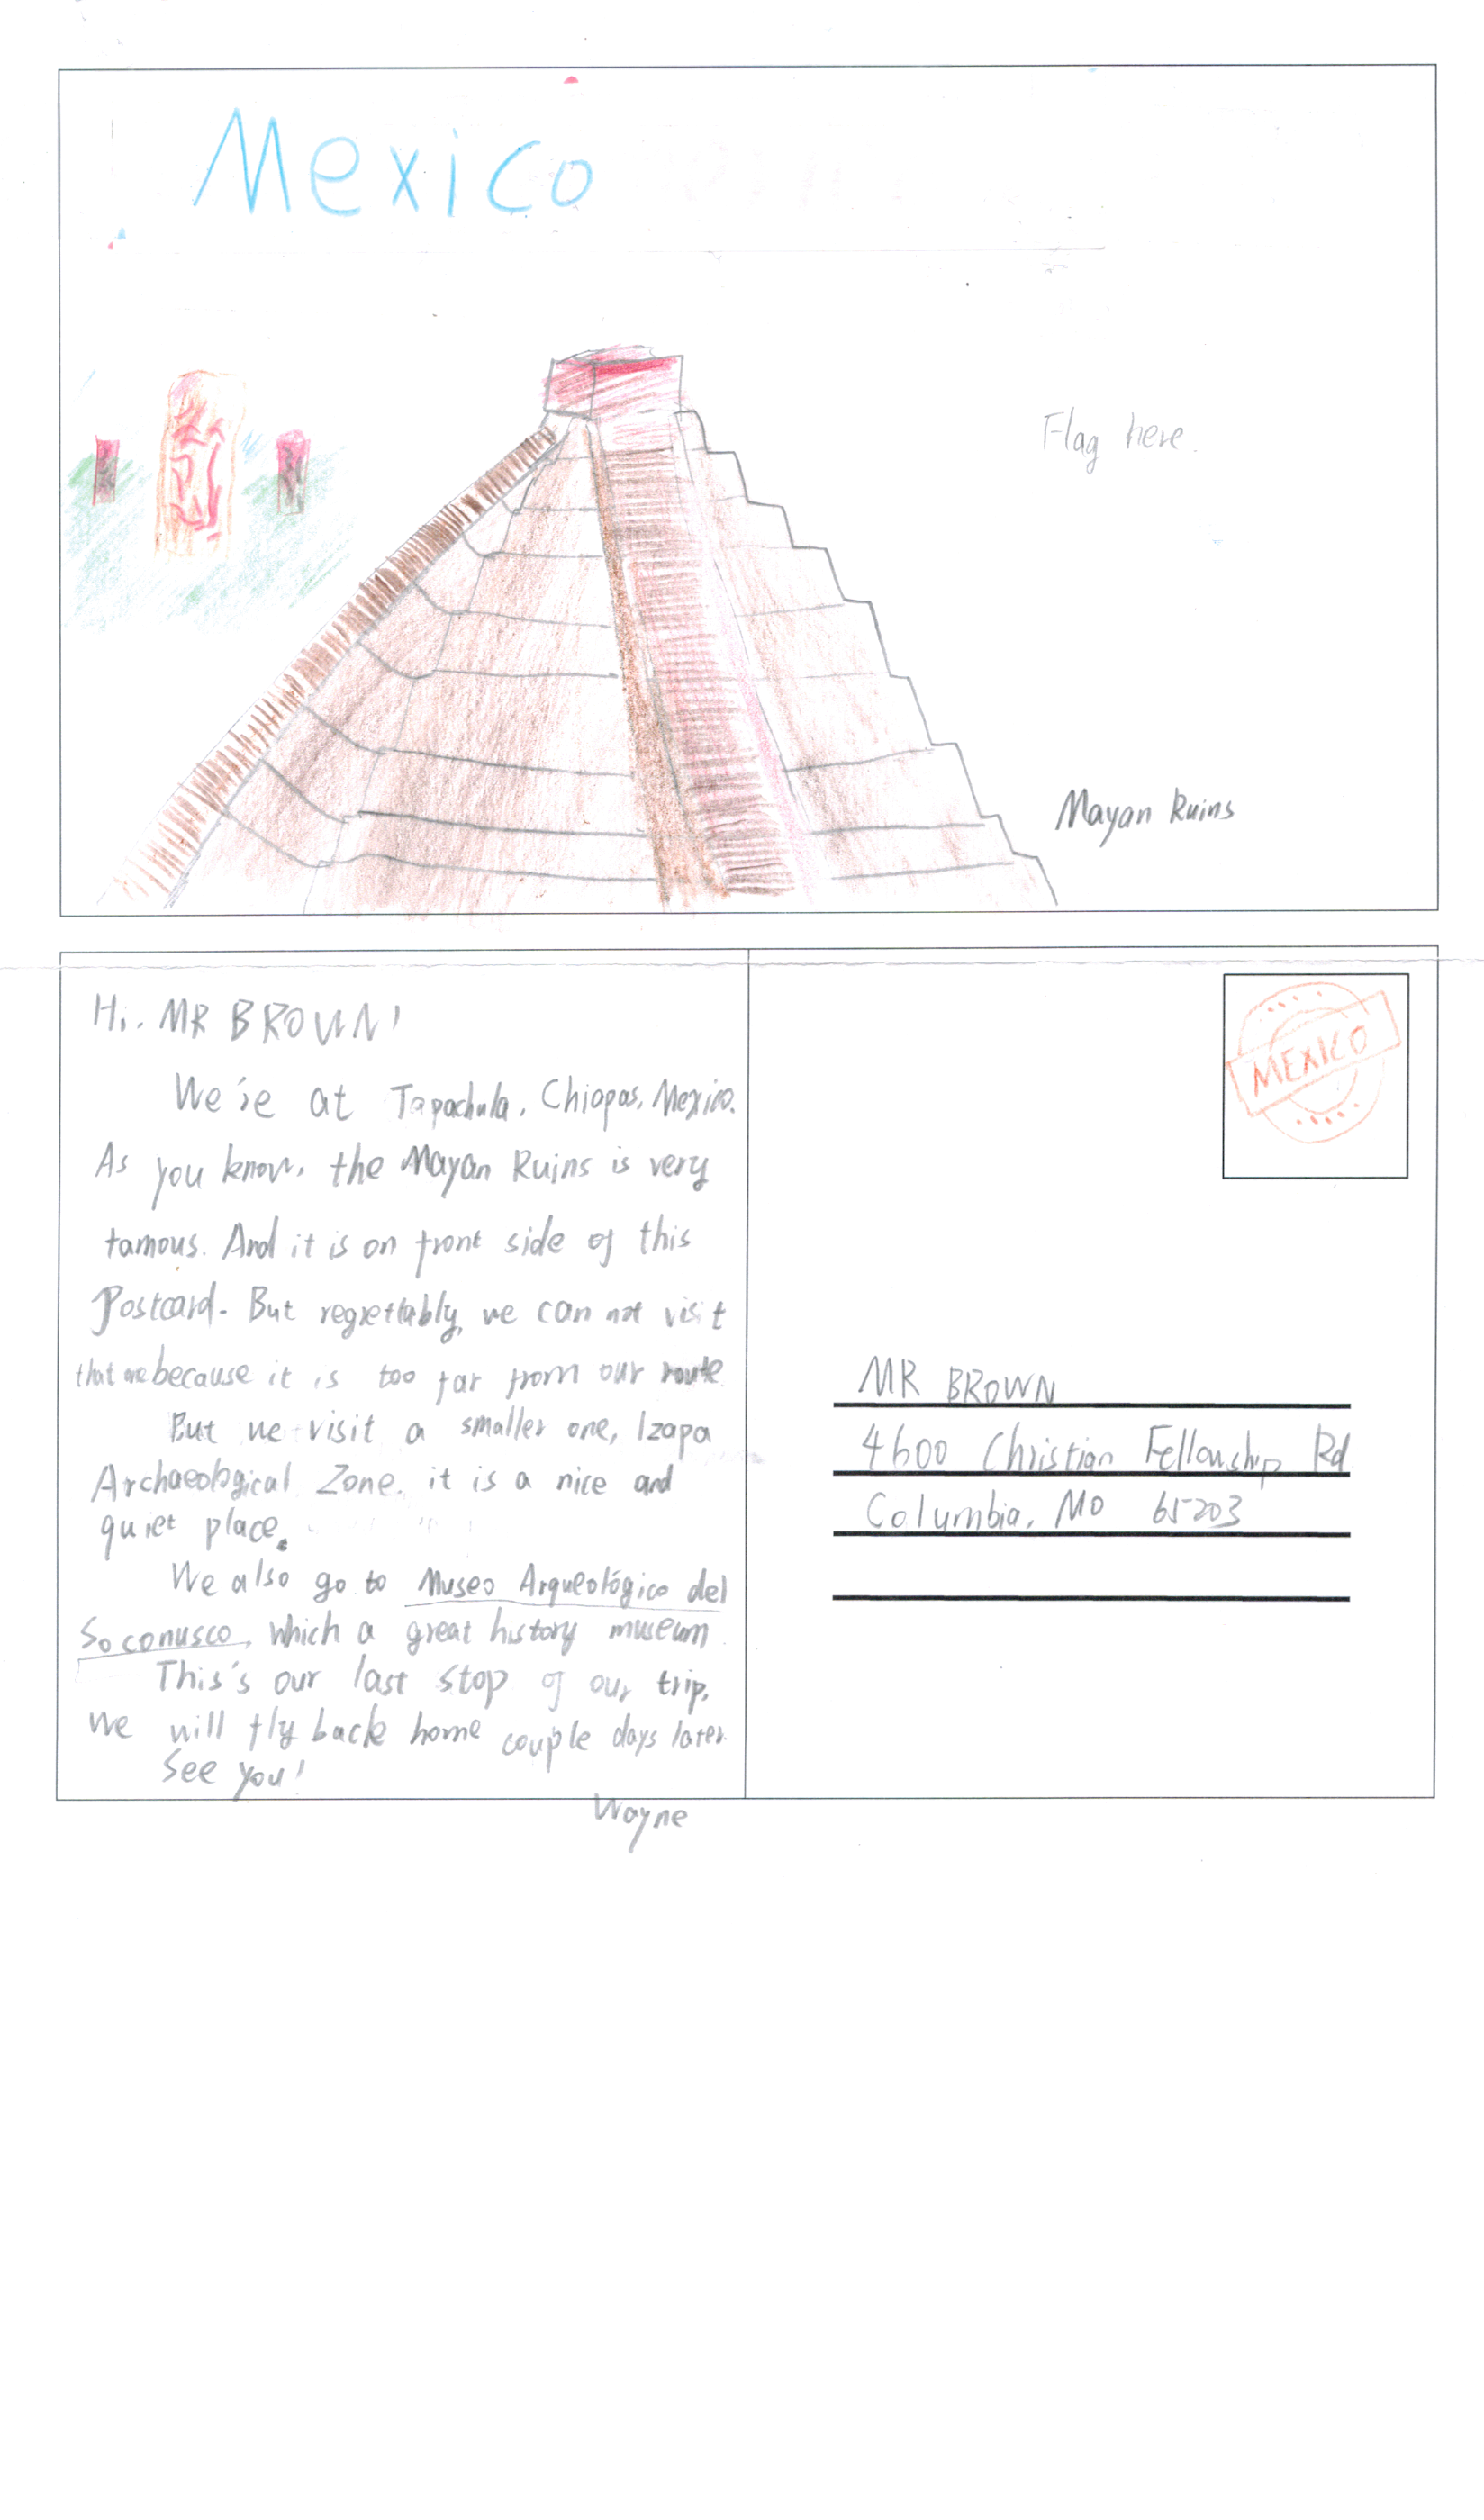 Mexico
Flag here.
Mayan Ruins
Hi. MR BROWN!
We're at Tapachula, Chiapas, Mexico.
As you know, the Mayan Ruins is very
famous. And it is on front side of this
Postcard. But regrettably, we can not visit
that one because it is too far from our route.
But we visit a smaller one, Izapa
Archaeological Zone. it is a nice and
quiet place.
We also go to Museo Arqueológico del
Soconusco, which a great history museum.
This's our last stop of our trip,
we will fly back home couple days later.
See you!
Wayne
MEXICO
MR BROWN
4600 Christian Fellowship Rd
Columbia, MO 65203